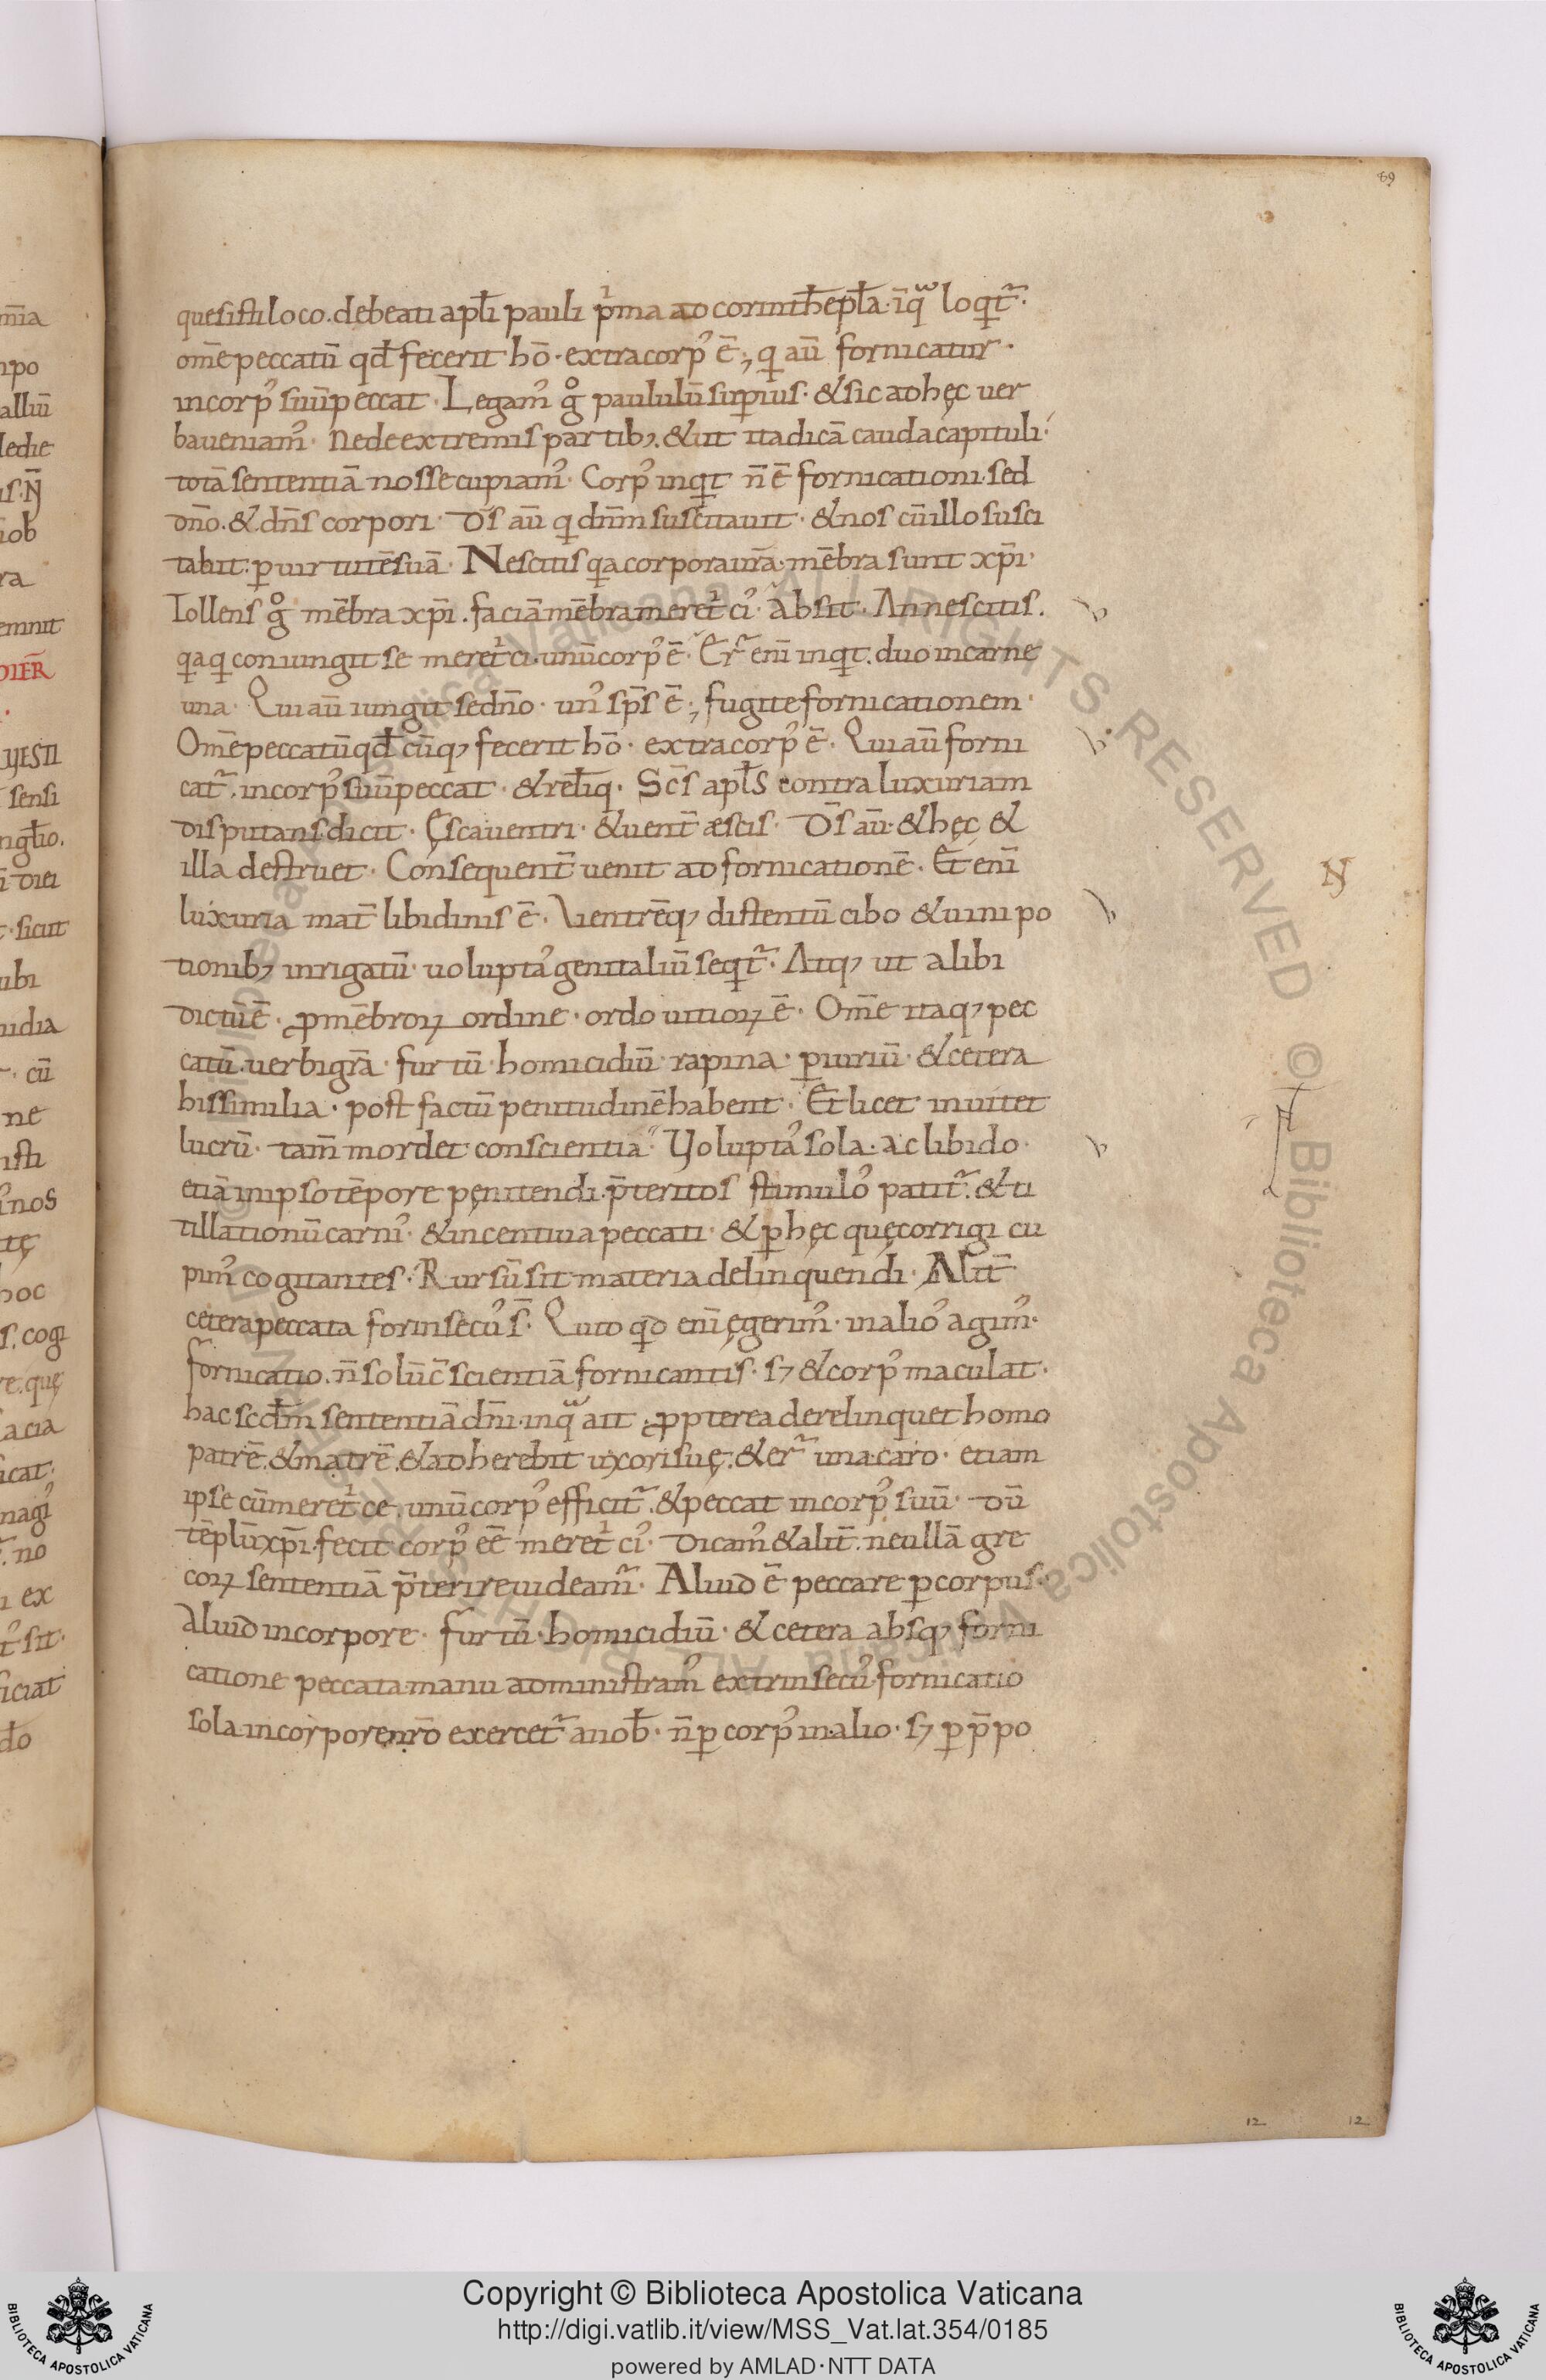 89
quesisti loco. debeati apl̄i pauli pͥma ad corinth̄ epl̄a. īq̄ loqt̃.
om̄e peccatū qd̄ fecerit hō. extra corp᾽ ē; q aū fornicatur.
in corp᾽ suū peccat. Legam᾽ gͦ paululū sup̱ius. & sic ad hęc uer
ba ueniam᾽. Ne de extremis partib;. & ut ita dicā cauda capituli.
totā sententiā nosse cupiam᾽. Corp᾽ inqt n̄ ē fornicationi. sed
dn̄o. & dn̄s corpori. Ds̄ aū q dn̄m suscitauit. & nos cū illo susci
tabit. p̱ uirtutē suā. Nescitis qa corpora ur̄a. mēbra sunt xp̄i.
Tollens gͦ mēbra xp̄i. faciā mēbra meretͥci᾽. absit. An nescitis.
qa q coniungit se meretͥci. unū corp᾽ ē. Er̃ enī inqt. duo in carne
una. Qui aū iungit se dn̄o. un᾽ sp̄s ē; fugite fornicationem.
Om̄e peccatū qd̄ cūq; fecerit hō. extra corp᾽ ē. Qui aū forni
cat̃. in corp᾽ suū peccat. & rel̄iq. Sc̄s apl̄s contra luxuriam
disputans dicit. Ęsca uentri. & uent̄ æscis. Ds̄ aū. & hęc &
illa destruet. Consequent̄ uenit ad fornicationē. Et enī
luxuria mat̄ libidinis ē. Uentrēq; distentū cibo & uini po
tionib; inrigatū. uolupta᾽ genitaliū seqt̃. Atq; ut alibi
dictū ē. ꝓ mēbroꝝ ordine. ordo uitioꝝ ē. Om̄e itaq; pec
catū. uerbi gr̄a. furtū. homicidiū. rapina. p̱iuriū. & cetera
his similia. post factū penitudinē habent. Et licet inuitet
lucrū. tam̄ mordet conscientia. Uolupta᾽ sola. ac libido.
etiā in ipso tēpore pęnitendi. p̄teritos stimulo᾽ patit̃. & ti
tillationū carni᾽. & incentiua peccati. & p̱ hęc quę corrigi cu
pim᾽ cogitantes. Rursū sit materia delinquendi. Alit̄
cetera peccata forinsecu᾽ s̄. Quid qd enī egerim᾽. in alio᾽ agim᾽.
fornicatio. n̄ solū c̄scientiā fornicantis. s; & corp᾽ maculat.
hac scd̄m sententiā dn̄i. in q̄ ait. ꝓpterea derelinquet homo
patrē. & matrē. & adherebit uxori suę. & er̃ una caro. etiam
ipse cū meretͥce. unū corp᾽ efficit̃. & peccat in corp᾽ suū. dū
tēplū xp̄i. fecit corp᾽ eē meretͥci᾽. Dicam᾽ & alit̄. ne ullā gre
coꝝ sententiā p̄terire uideam̃. Aliud ē peccare p̱ corpus.
Aliud in corpore. furtū. homicidiū. & cetera absq; forni
catione peccata manu administram᾽ extrinsecu᾽. fornicatio
sola in corpore nr̄o exercet̃ a nob̄. n̄ p̱ corp᾽ in alio. s; p̱ p̄po
N
12 12
Copyright © Biblioteca Apostolica Vaticana
http://digi.vatlib.it/view/MSS_Vat.lat.354/0185
powered by AMLAD·NTT DATA
BIBLIOTECA APOSTOLICA VATICANA
BIBLIOTECA APOSTOLICA VATICANA